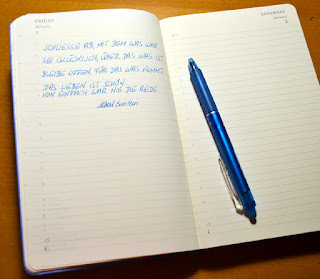 FRIDAY
SATURDAY
SCHLIESSE AB, MIT DEM WAS WAR
SEI GLÜCKLICH, ÜBER DAS WAS IST
BLEIBE OFFEN, FÜR DAS WAS KOMMT.
DAS LEBEN IST SCHÖN.
VON EINFACH WAR NIE DIE REDE
Albert Einstein